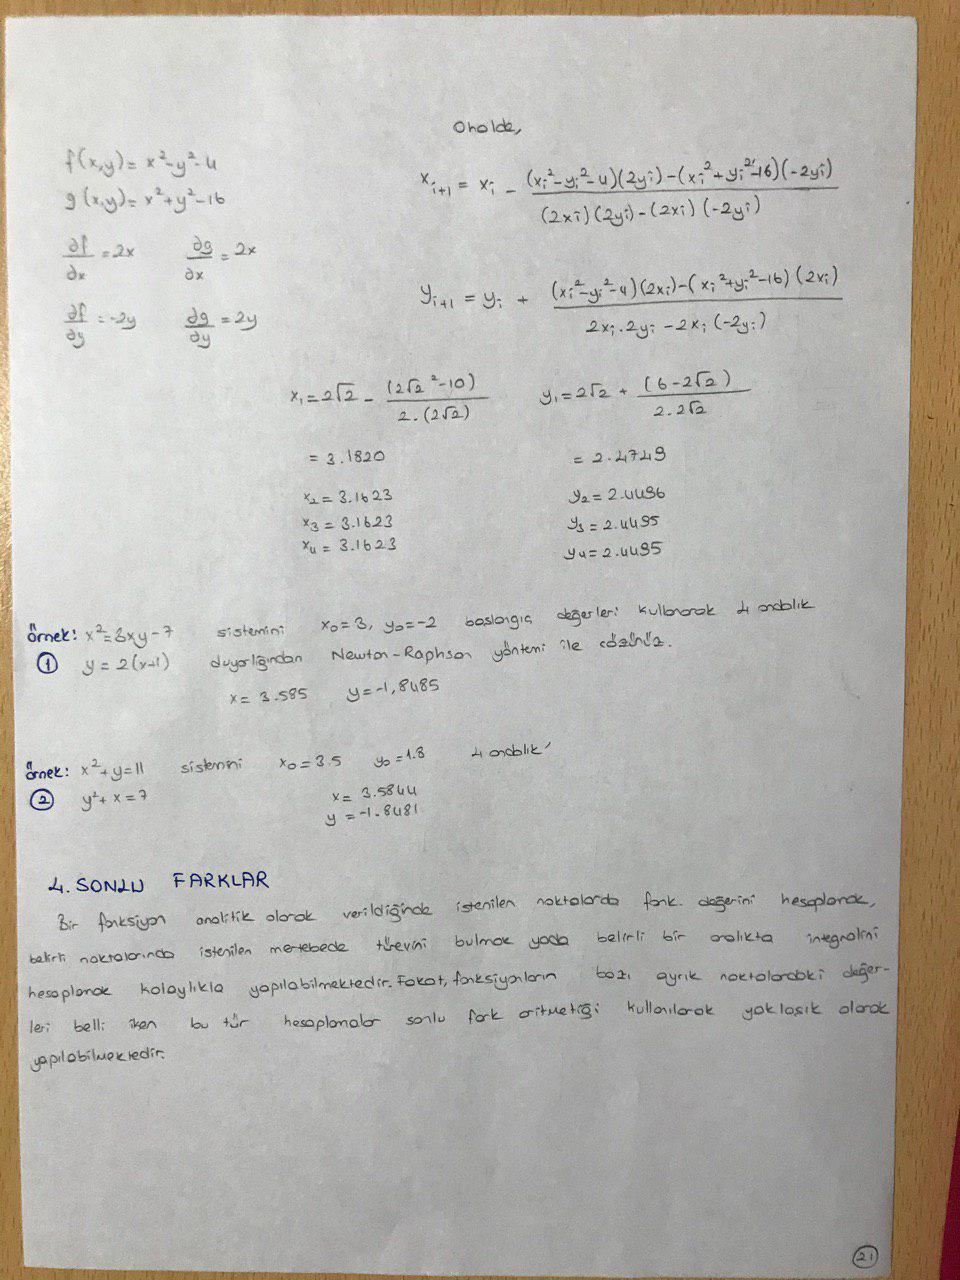 Oholde,
f(x,y) = x²-y²-4
g(x,y) = x²+y²-16
∂f/∂x = 2x ∂g/∂x = 2x
∂f/∂y = -2y ∂g/∂y = 2y
xᵢ₊₁ = xᵢ - ((xᵢ²-yᵢ²-4)(2yᵢ)-(xᵢ²+yᵢ²-16)(-2yᵢ))/((2xᵢ)(2yᵢ)-(2xᵢ)(-2yᵢ))
yᵢ₊₁ = yᵢ + ((xᵢ²-yᵢ²-4)(2xᵢ)-(xᵢ²+yᵢ²-16)(2xᵢ))/(2xᵢ.2yᵢ-2xᵢ(-2yᵢ))
x₁ = 2√2 - (2√2²-10)/(2.(2√2)) y₁ = 2√2 + (6-2√2)/(2.2√2)
= 3.1820 = 2.4749
x₂ = 3.1623 y₂ = 2.4496
x₃ = 3.1623 y₃ = 2.4495
x₄ = 3.1623 y₄ = 2.4495
örnek: x²=3xy-7 sistemini x₀=3, y₀=-2 başlangıç değerleri kullanarak 4 ondalık
① y = 2(x-1) duyarlığından Newton-Raphson yöntemi ile çözünüz.
x = 3.585 y = -1,8485
örnek: x²+y=11 sistemini x₀=3.5 y₀=1.8 4 ondalık
② y²+x=7 x = 3.5844
y = -1.8481
4. SONLU FARKLAR
Bir fonksiyon analitik olarak verildiğinde istenilen noktalarda fonk. değerini hesaplamak,
belirli noktalarında istenilen mertebede türevini bulmak yada belirli bir aralıkta integralini
hesaplamak kolaylıkla yapılabilmektedir. Fakat, fonksiyonların bazı ayrık noktalardaki değer-
leri belli iken bu tür hesaplamalar sonlu fark aritmetiği kullanılarak yaklaşık olarak
yapılabilmektedir.
21